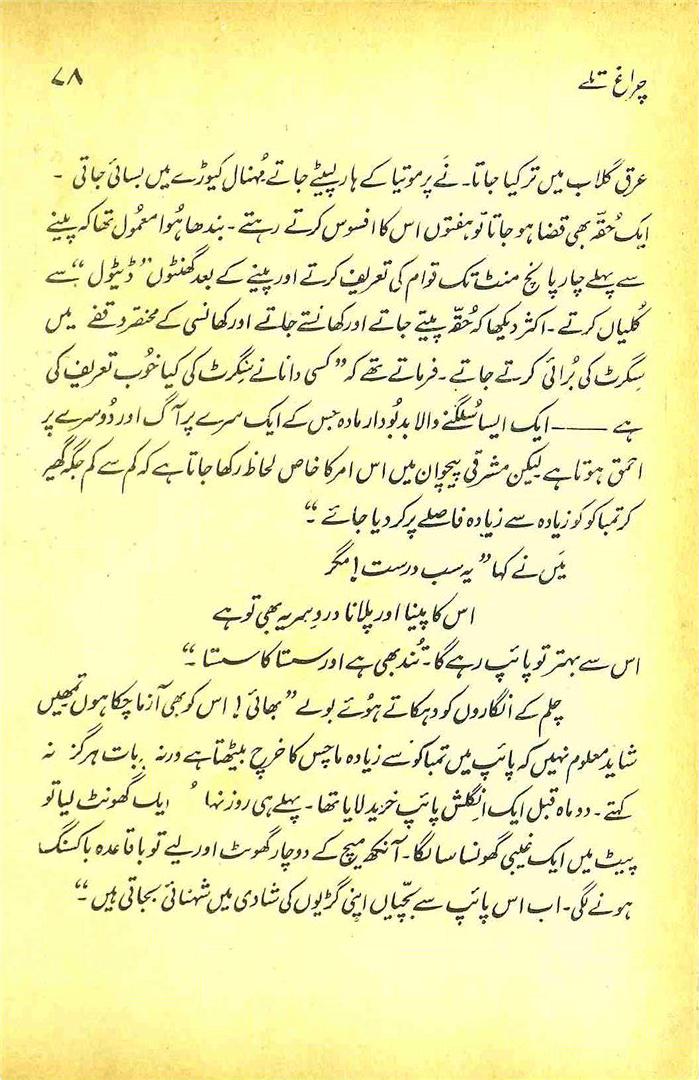 چراغ تلے
۷۸
عرق گلاب میں تر کیا جاتا۔ نَے پر موتیا کے ہار لپیٹے جاتے مُہنال کیوڑے میں بسائی جاتی ۔
ایک حُقّہ بھی قضا ہو جاتا تو ہفتوں اس کا افسوس کرتے رہتے ۔ بندھا ہُوا معمول تھا کہ پینے
سے پہلے چار پانچ منٹ تک قوام کی تعریف کرتے اور پینے کے بعد گھنٹوں ”ڈیٹول“ سے
کُلیاں کرتے ۔ اکثر دیکھا کہ حُقّہ پیتے جاتے اور کھانستے جاتے اور کھانسی کے مختصر وقفے میں
سِگرٹ کی بُرائی کرتے جاتے ۔ فرماتے تھے کہ ”کسی دانا نے سِگرٹ کی کیا خُوب تعریف کی
ہے —— ایک ایسا سُلگنے والا بدبُودار مادہ جس کے ایک سرے پر آگ اور دُوسرے پر
احمق ہوتا ہے لیکن مشرقی پیچوان میں اس امر کا خاص لحاظ رکھا جاتا ہے کہ کم سے کم جگہ گھیر
کر تمباکو کو زیادہ سے زیادہ فاصلے پر کر دیا جائے ۔“
مَیں نے کہا ”یہ سب درست! مگر
اس کا پینا اور پلانا دردِ سر یہ بھی تو ہے
اس سے بہتر تو پائپ رہے گا۔ تُند بھی ہے اور سستا کا سستا ۔“
چلم کے انگاروں کو دہکاتے ہُوئے بولے ”بھائی! اس کو بھی آزما چکا ہوں تمھیں
شاید معلوم نہیں کہ پائپ میں تمباکو سے زیادہ ماچس کا خرچ بیٹھتا ہے ورنہ یہ بات ہرگز نہ
کہتے ۔ دو ماہ قبل ایک انگلش پائپ خرید لایا تھا ۔ پہلے ہی روز نہار ایک گھونٹ لیا تو
پیٹ میں ایک غیبی گھونسا سا لگا ۔ آنکھ میچ کے دو چار گھونٹ اور لیے تو باقاعدہ باکسنگ
ہونے لگی ۔ اب اس پائپ سے بچّیاں اپنی گڑیوں کی شادی میں شہنائی بجاتی ہیں ۔“